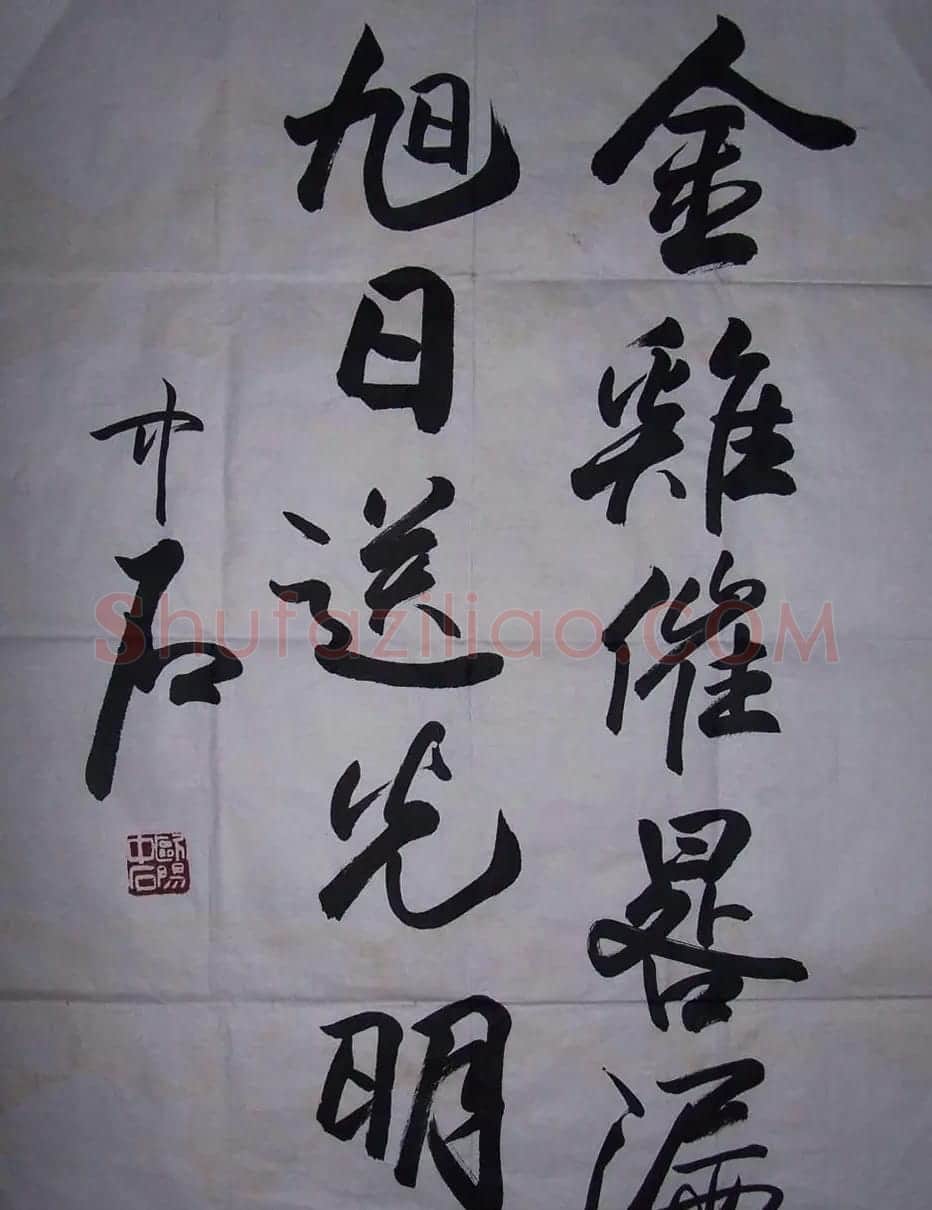 金雞催晷漏
旭日送光明
中石
歐陽
中石
Shufaziliao.COM